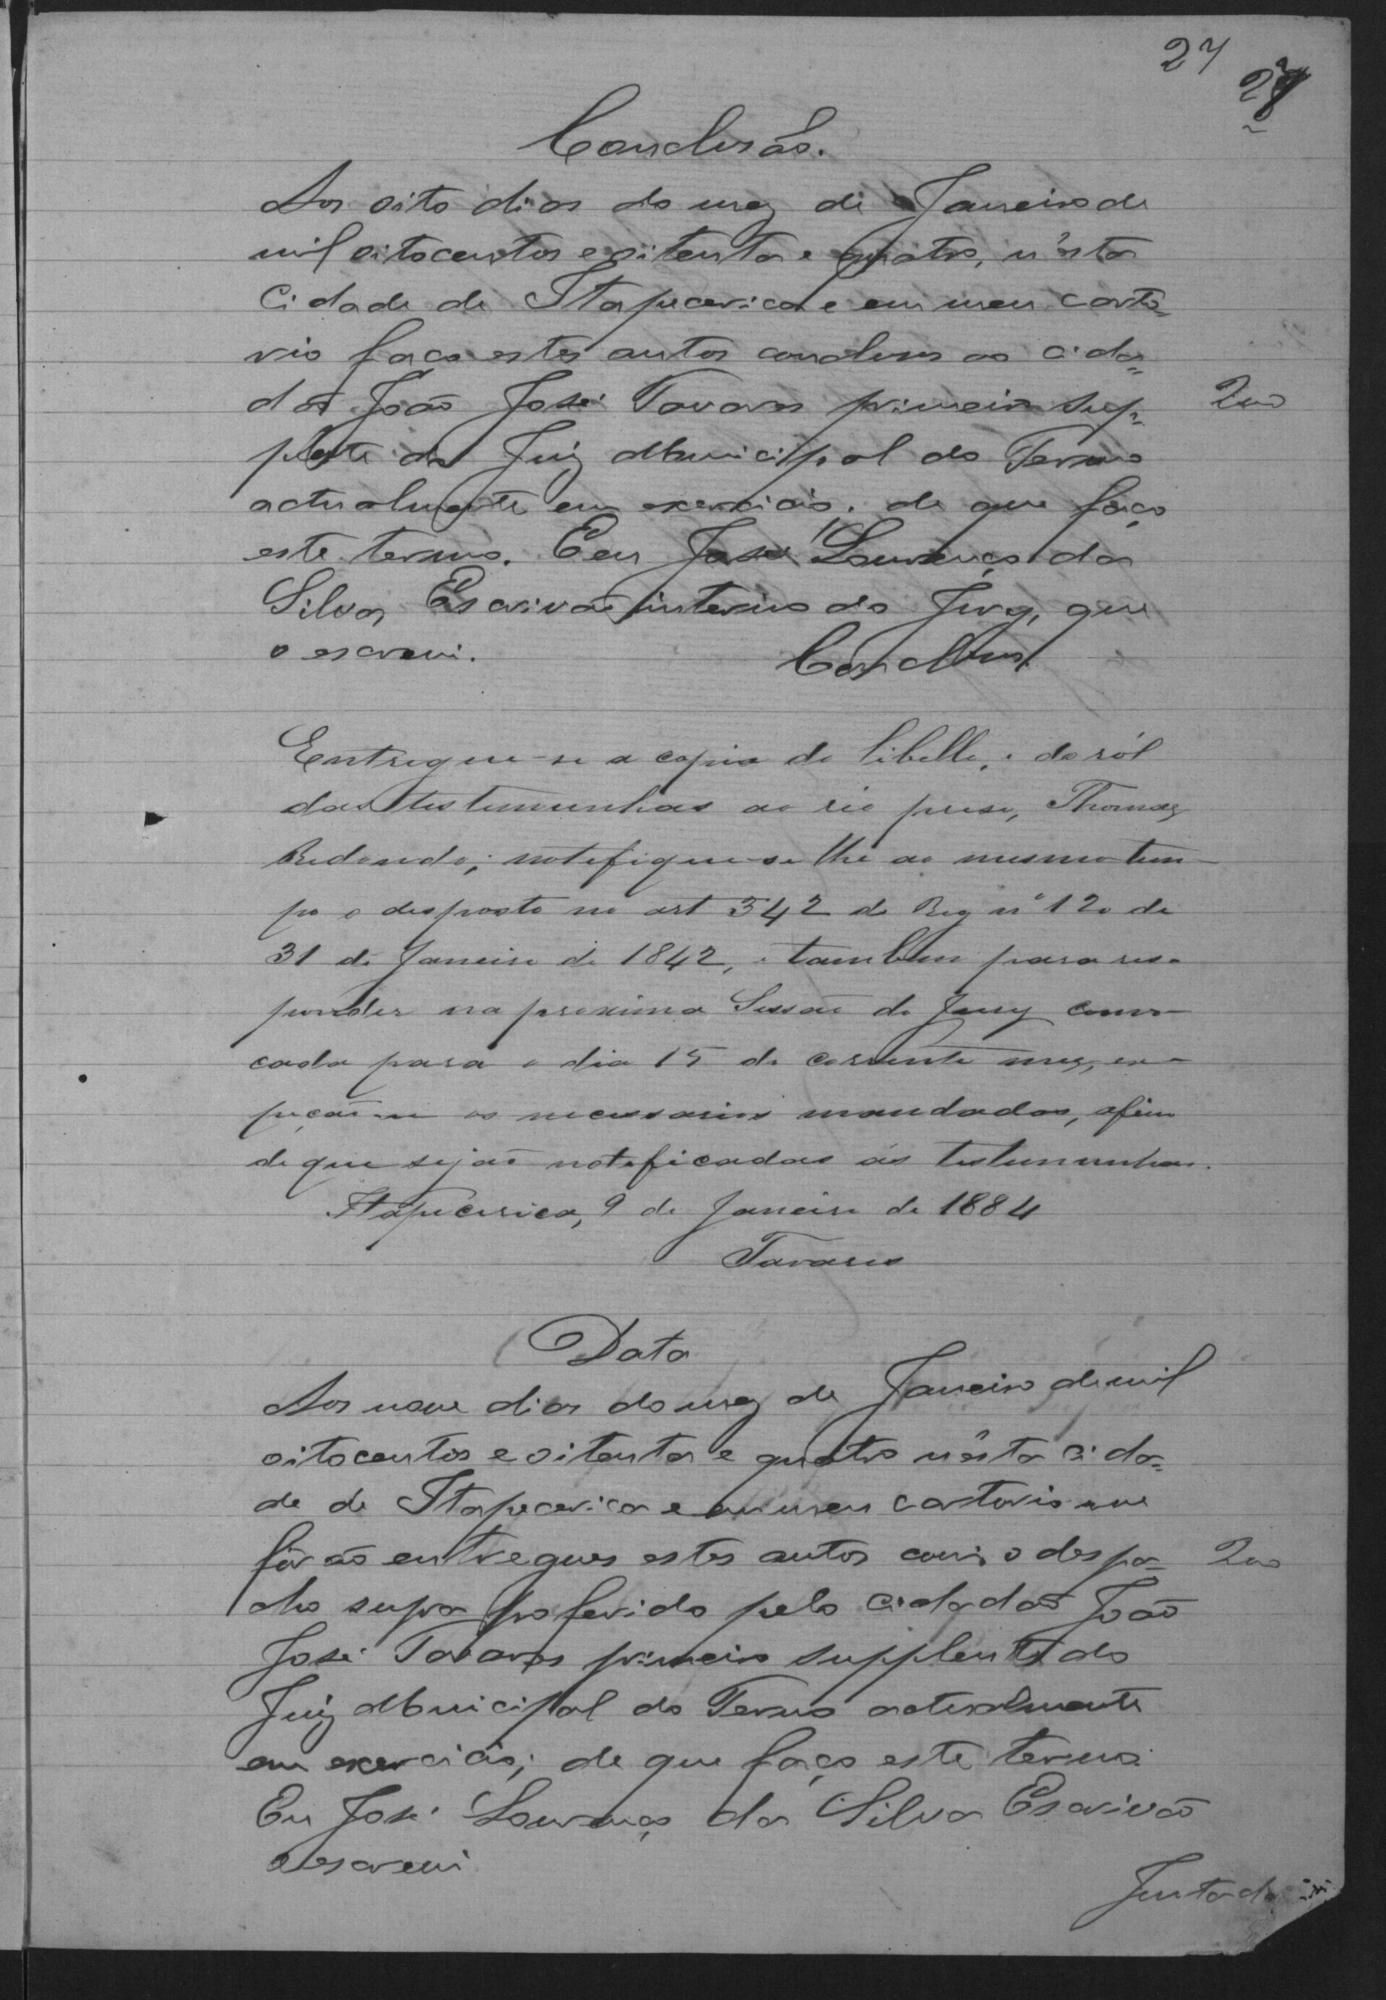 27
28
Conclusão.
Aos oito dias do mez de Janeiro de
mil oitocentos e oitenta e quatro, n'esta
Cidade de Itapecerica e em meu carto=
rio faço estes autos conclusos ao cida=
dão João José Tavares primeiro sup=
plente do Juiz Municipal do Termo
200
actualmente em exercicio. de que faço
este termo. E eu José Lourenço da
Silva, Escrivão interino do Jury, que
o escrevi.
Conclusos
Entregue-se a copia do libello, e do ról
das testemunhas ao réo preso, Thomaz
Redondo; notifique-se lhe ao mesmo tem-
po o desposto no art 342 do Reg nº 120 de
31 de Janeiro de 1842, e tambem para res-
ponder na proxima Sessão do Jury convo-
cada para o dia 15 do corrente mez, ex-
peção-se os necessarios mandados, afim
de que sejão notificadas ás testemunhas.
Itapecerica, 9 de Janeiro de 1884
Tavares
Data
Aos nove dias do mez de Janeiro de mil
oitocentos e oitenta e quatro n'esta cida=
de de Itapecerica e em meu cartorio me
fôrão entregues estes autos com o despa=
200
cho supra proferido pelo cidadão João
José Tavares primeiro supplente do
Juiz Municipal do Termo actualmente
em exercicio; de que faço este termo.
Eu José Lourenço da Silva Escrivão
o escrevi
Juntada